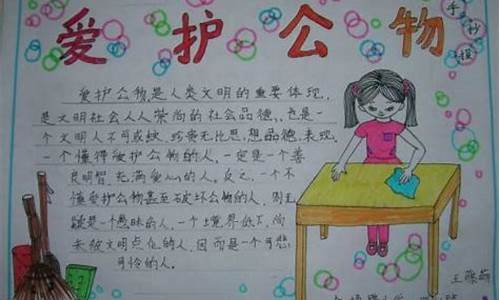 爱护公物
手抄报
爱护公物,是人类文明的重要体现,
是文明社会人人崇尚的社会品德,也是一
个文明人不可或缺、珍贵无比思想品德表现,
一个懂得爱护公物的人,一定是一个善
良明智、充满爱心的人。反之,一个不
懂爱护公物甚至破坏公物的人,则无
疑是一个愚昧的人,一个境界低下,尚
未被文明点化的人,因而是一个可悲
可怜的人。